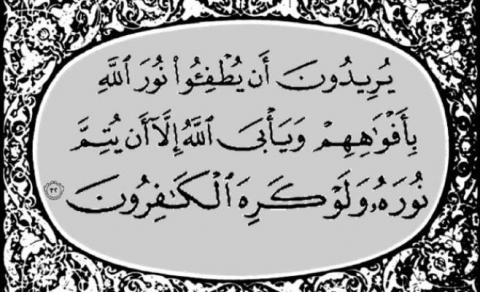 يُرِيدُونَ أَن يُطْفِـُٔوا۟ نُورَ ٱللَّهِ
بِأَفْوَٰهِهِمْ وَيَأْبَى ٱللَّهُ إِلَّآ أَن يُتِمَّ
نُورَهُۥ وَلَوْ كَرِهَ ٱلْكَٰفِرُونَ ٣٢